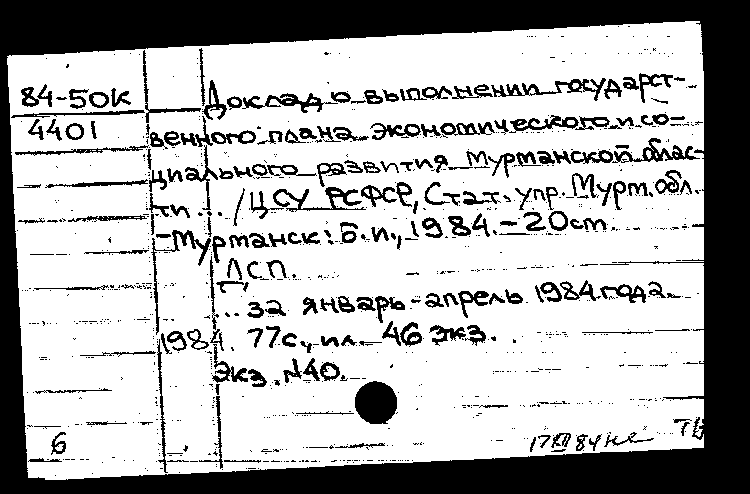 84-50к Доклад о выполнении государст-
4401 венного плана экономического и со-
циального развития Мурманской облас-
ти... /ЦСУ РСФСР, Стат. упр. Мурм. обл.
-Мурманск: Б.и., 1984. - 20 см.
ДСП.
...за январь-апрель 1984 года.
1984. 77с., ил. 46 экз.
Экз. №40.
6 17 XII 84